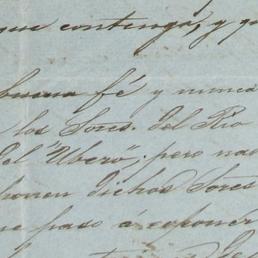 que contenga, y q
buena fé y nunca
los Sores. del Rio
del "Ubero", pero na
ponen dichos Sores
me paso á esponer